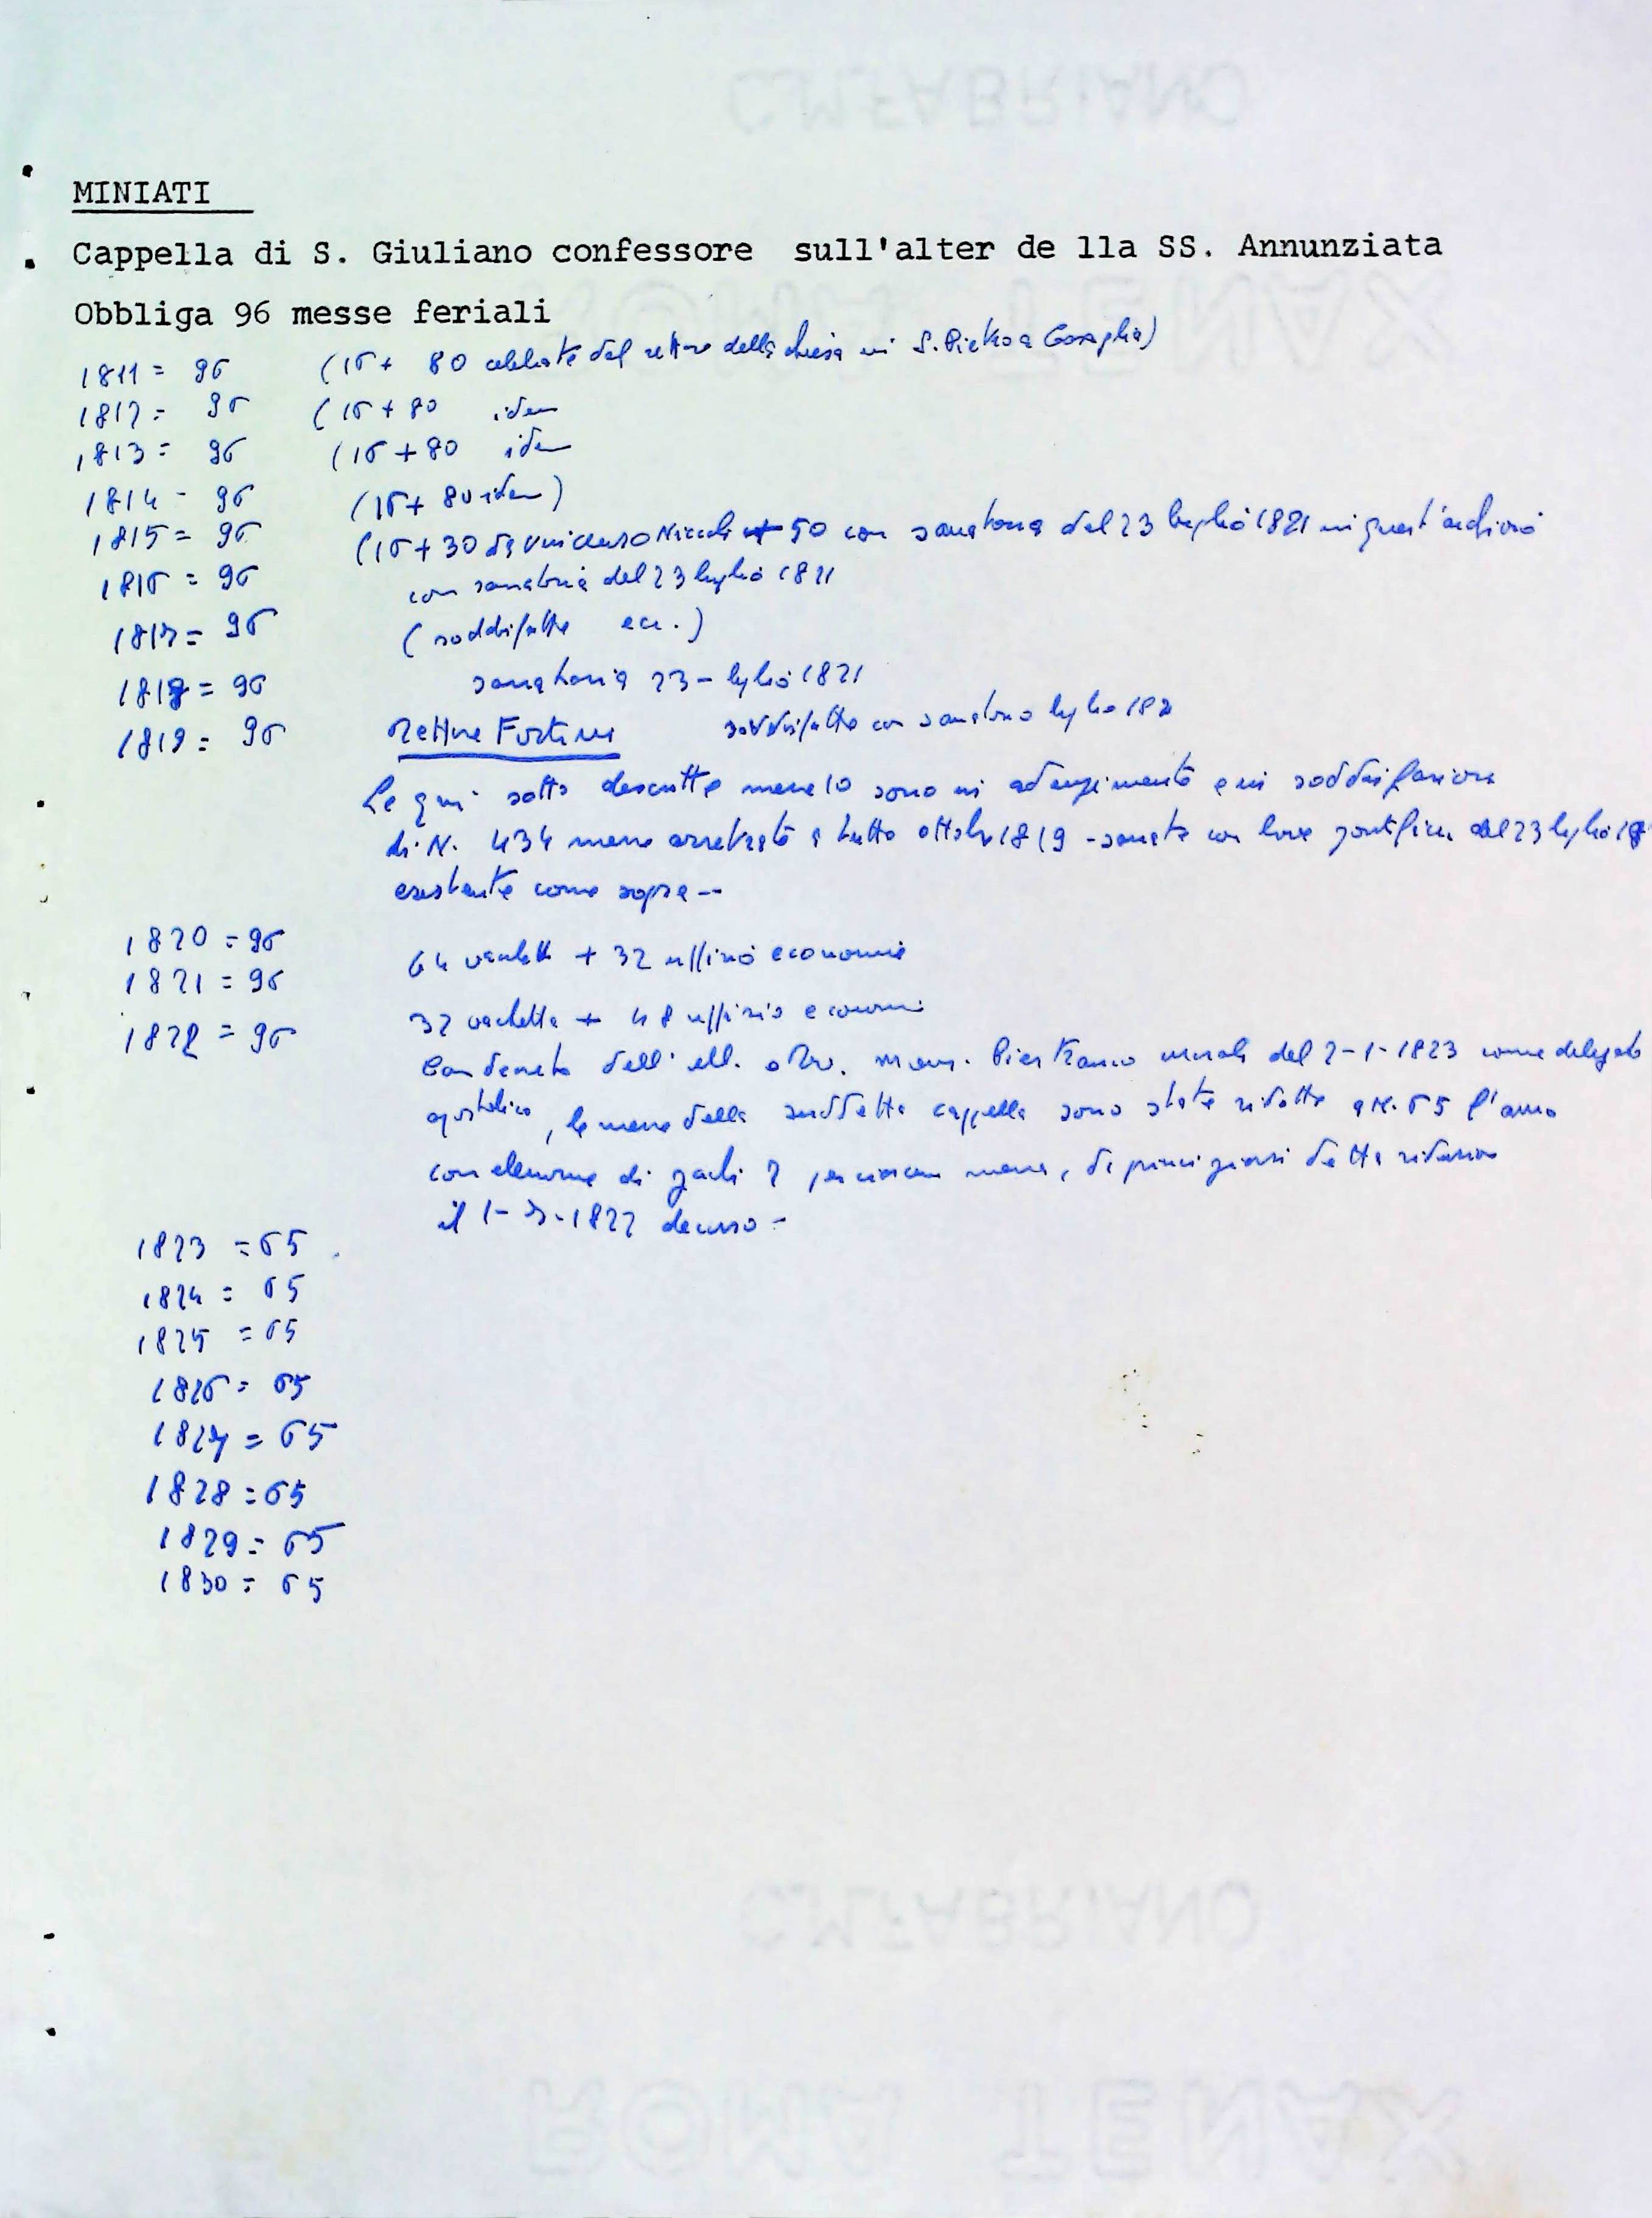 C.M.FABRIANO
ROMA TENAX
MINIATI
Cappella di S. Giuliano confessore sull'alter de lla SS. Annunziata
Obbliga 96 messe feriali
1811 = 96 (16 + 80 celebrate dal rettore della chiesa di S. Pietro a Careggi)
1812 = 96 (16 + 80 idem
1813 = 96 (16 + 80 idem
1814 - 96 (16 + 80 idem)
1815 = 96 (16 + 30 da Niccoli + 50 con sanatoria del 23 luglio 1821 in quest'archivio
1816 = 96 con sanatoria del 23 luglio 1821
1817 = 96 (soddisfatte ecc.)
1818 = 96 sanatoria 23 - luglio 1821
1819 = 96 Rettore Fortini soddisfatte con sanatoria luglio 182
Le qui sotto descritte messe 10 sono in adempimento e in soddisfazione
di N. 434 messe arretrate a tutto ottobre 1819 - sanate con breve pontificio del 23 luglio 18
esistente come sopra --
1820 = 96 64 vacchetta + 32 uffizio economie
1821 = 96 32 vacchetta + 48 uffizio economi
1822 = 96
Con decreto dell' ill. e Rev. mons. Pier Franco Morali del 2-1-1823 come delegato
apostolico, le messe della suddetta cappella sono state ridotte a N. 65 l'anno
con elemosina di paoli 2 per ciascuna messa, da principiarsi detta riduzione
il 1-7-1822 decorso -
1823 = 65
1824 = 65
1825 = 65
1826 = 65
1827 = 65
1828 = 65
1829 = 65
1830 = 65
C.M.FABRIANO
ROMA TENAX